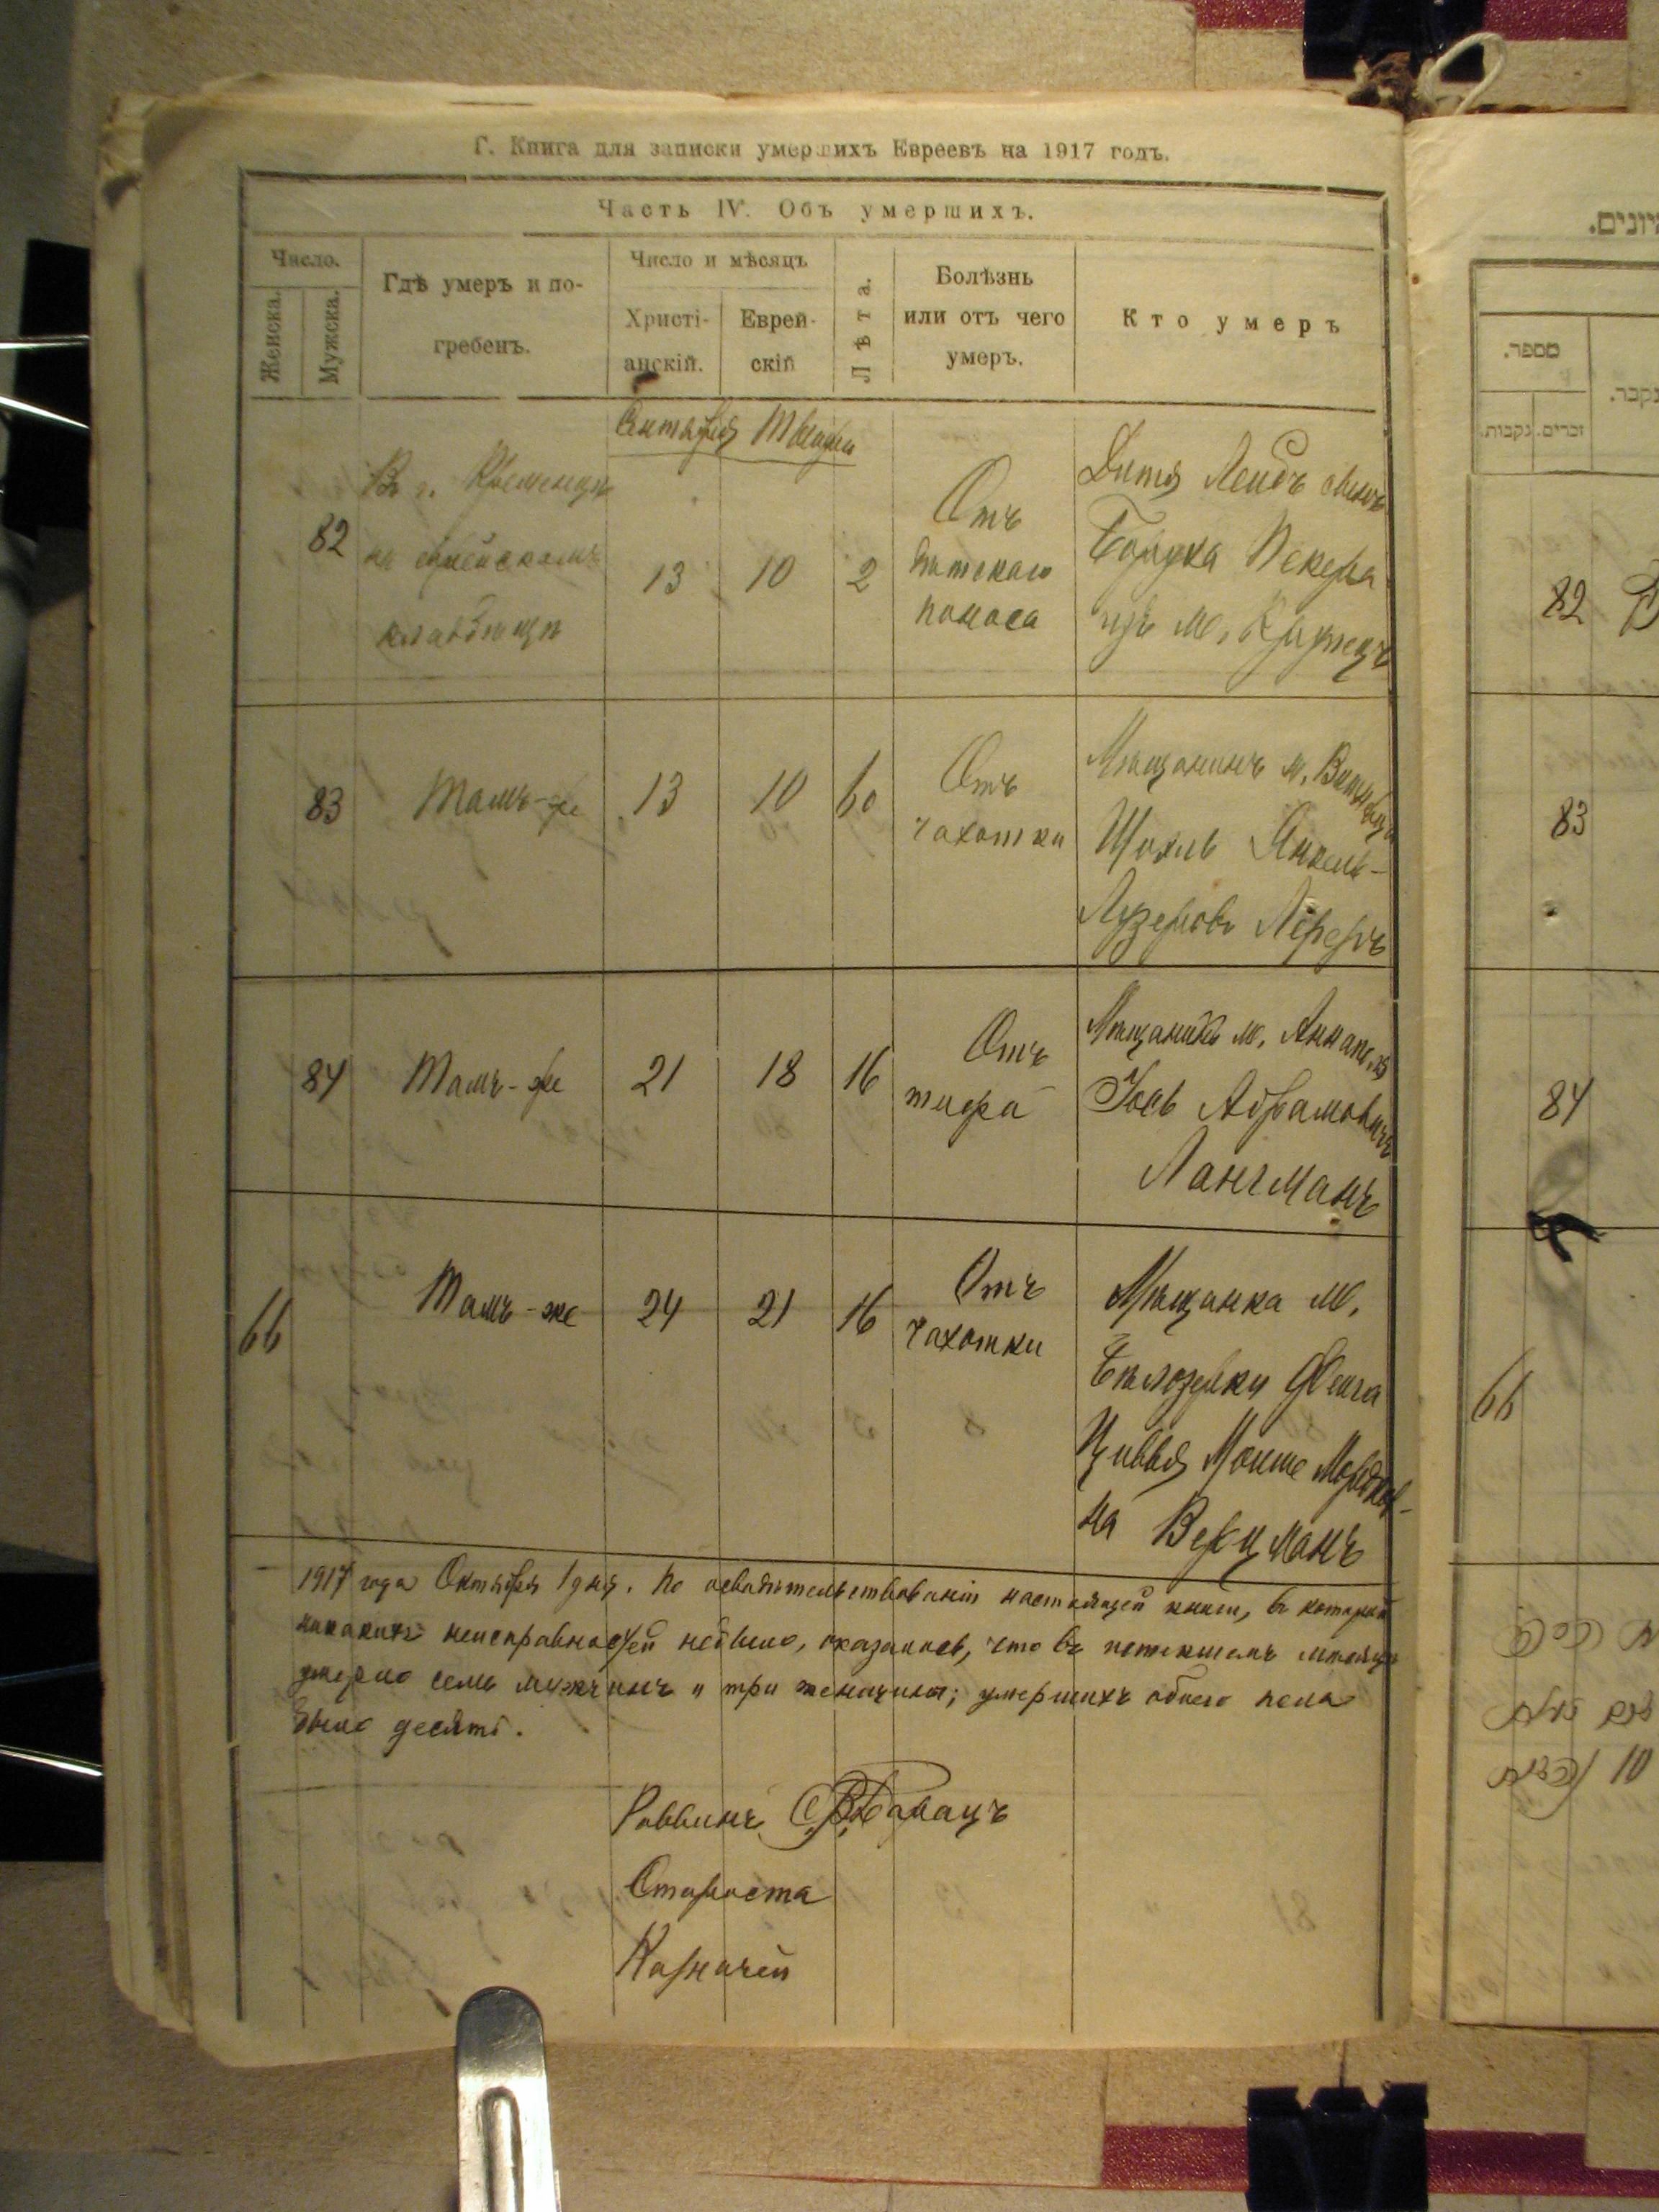 Г. Книга для записки умершихъ Евреевъ на 1917 годъ.
Часть IV. Объ умершихъ.
Число.
Женска.
Мужска.
Гдѣ умеръ и по-
гребенъ.
Число и мѣсяцъ
Христі-
анскій.
Еврей-
скій
Лѣта.
Болѣзнь
или отъ чего
умеръ.
Кто умеръ
Сентября Тишри
82
В г. Кременцѣ
на еврейскомъ
кладбищѣ
13
10
2
Отъ
дѣтскаго
поноса
Дитя Лейбъ сынъ
Пекера
изъ м.
83
Тамъ-же
13
10
60
Отъ
чахотки
Мѣщанинъ м. Вишневца
Янкель-
Лузеровъ Лереръ
84
Тамъ-же
21
18
16
Отъ
тифа
Мѣщанинъ м.
Іось Абрамовичъ
Лангманъ
66
Тамъ-же
24
21
16
Отъ
чахотки
Мѣщанка м.
Бѣлозерки Фейга
Цивья Моише Мордков-
на Верцманъ
1917 года Октября 1 дня. По освидѣтельствованіи настоящей книги, въ которой
никакихъ неисправностей небыло, оказалось, что въ истекшемъ мѣсяцѣ
умерло семь мужчинъ и три женщины; умершихъ обоего пола
было десять.
Раввинъ
Староста
Казначей
מספר.
זכרים.
נקבות.
82
83
84
66